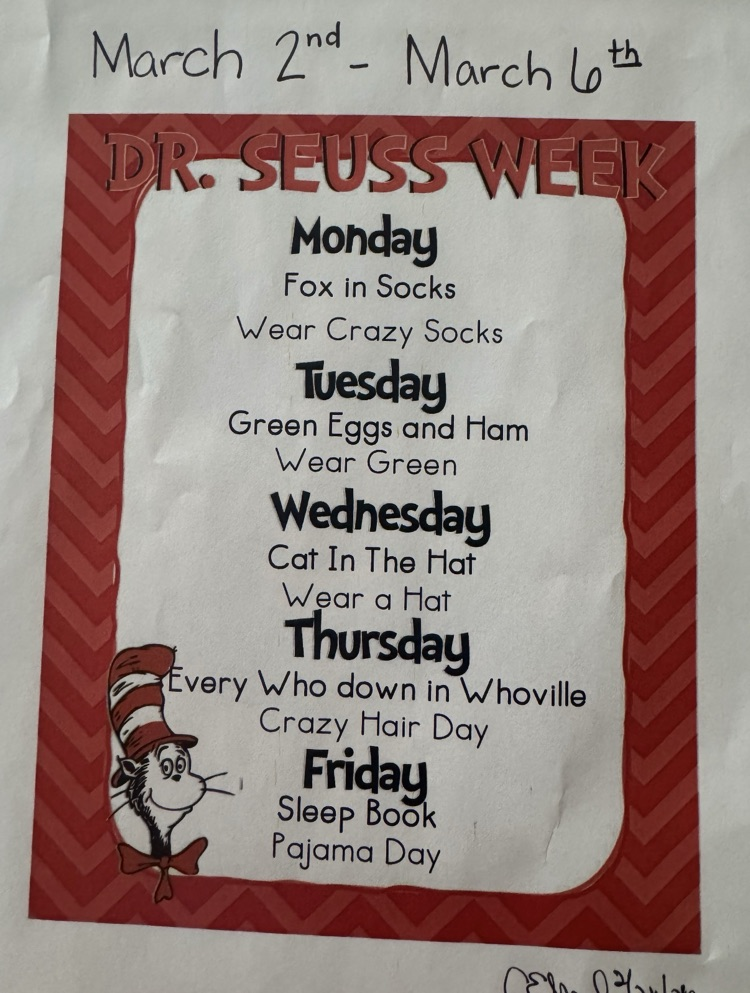 March 2nd - March 6th
DR. SEUSS WEEK
Monday
Fox in Socks
Wear Crazy Socks
Tuesday
Green Eggs and Ham
Wear Green
Wednesday
Cat In The Hat
Wear a Hat
Thursday
Every Who down in Whoville
Crazy Hair Day
Friday
Sleep Book
Pajama Day